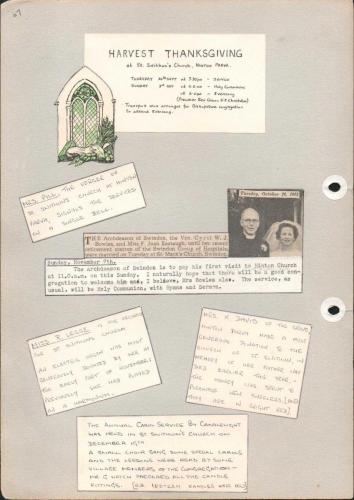 67
HARVEST THANKSGIVING
at St. Swithun's Church, Hinton Parva.
THURSDAY 30th SEPT at 7.30pm - Service
SUNDAY 3rd OCT at - Holy Communion
at - Evensong
Transport was arranged for Bishopstone congregation
to attend Evensong.
MRS. THE VERGER OF
ST SWITHUN'S CHURCH AT HINTON
PARVA, SIGNALS THE SERVICES
ON A SINGLE BELL.
Tuesday, October 26, 1971
THE Archdeacon of Swindon, the Ven. Cyril W. J.
Bowles, and Miss F. Joan Eastaugh, until her recent
retirement matron of the Swindon Group of Hospitals,
were married on Tuesday at St. Mark's Church, Swindon.
Sunday, November 7th.
The Archdeacon of Swindon is to pay his first visit to Hinton Church
at 11.0.a.m. on this Sunday. I naturally hope that there will be a good con-
gregation to welcome him and, I believe, Mrs Bowles also. The service, as
usual, will be Holy Communion, with Hymns and Sermon.
MISS
ST SWITHUN'S CHURCH
AN ELECTRIC ORGAN WAS MOST
GENEROUSLY DONATED BY HER IN
THE EARLY PART OF NOVEMBER:
PREVIOUSLY SHE HAD PLAYED
ON A HARMONIUM.
MRS. K. DAVIS OF THE
HINTON PARVA MADE A MOST
GENEROUS DONATION TO THE
CHURCH OF ST SWITHUN, IN
MEMORY OF HER FATHER WHO
DIED EARLIER THIS YEAR.
THE MONEY WAS SPENT TO
PURCHASE NEW KNEELERS, (AND
THEY ARE IN BRIGHT RED)
THE ANNUAL CAROL SERVICE BY CANDLELIGHT
WAS HELD IN ST SWITHUN'S CHURCH ON
DECEMBER
A SMALL CHOIR SANG SOME SPECIAL CAROLS
AND THE LESSONS WERE READ BY SOME
VILLAGE MEMBERS OF THE CONGREGATION -
MR G HATCH PREPARED ALL THE CANDLE
FITTINGS. CANDLES WERE